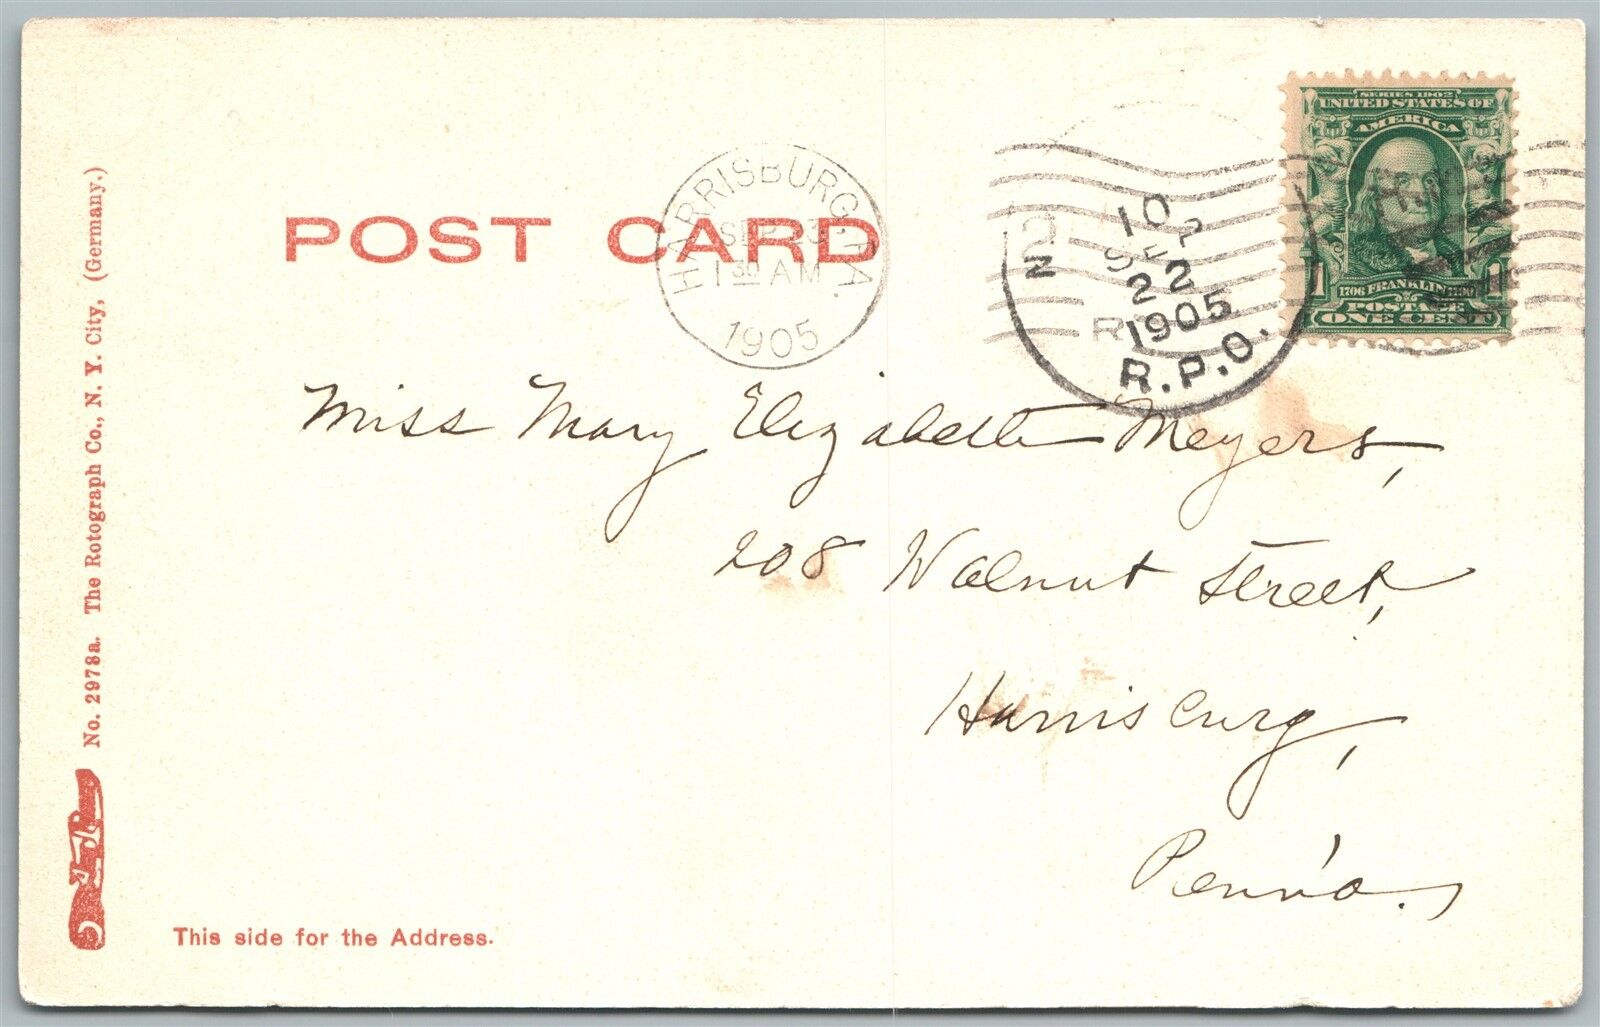 POST CARD
HARRISBURG, PA.
SEP 23
1 30 AM
1905
10
SEP
22
1905
R.P.O.
SERIES 1902
UNITED STATES OF
AMERICA
1706 FRANKLIN 1790
POSTAGE
ONE CENT
Miss Mary Elizabeth Meyers,
208 Walnut Street,
Harrisburg,
Penn'a.,
This side for the Address.
No. 2978a. The Rotograph Co., N. Y. City, (Germany.)